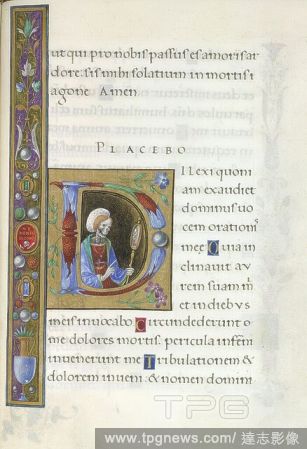 ut qui pro nobis passus es amoris ar
dore. sis mihi solatium in mortis
agone Amen
PLACEBO
DILexi quoni
am exaudiet
dominus vo
cem orationis
mee Quia in
clinavit au
rem suam m
et in diebus
meis invocabo Circundederunt
me dolores mortis. pericula infern
invenerunt me Tribulationem &
dolorem inveni. & nomen domini
TPG
www.tpgnews.com/ 達志影像